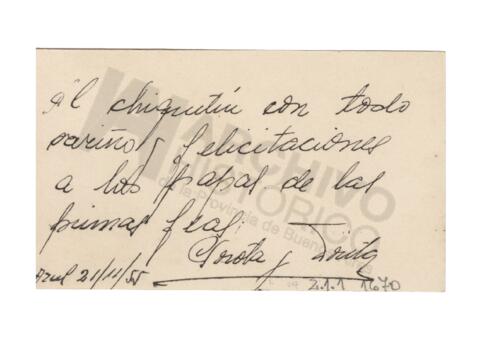 Al chiquitín con todo
cariño y felicitaciones
a los papas de las
primas feas:
Porota y
Azul 21/11/55
2.1.1 1670
ARCHIVO
HISTÓRICO
de la Provincia de Buenos Aires